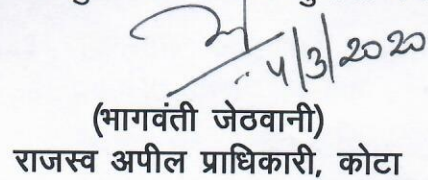 4/3/2020
(भागवंती जेठवानी)
राजस्व अपील प्राधिकारी, कोटा